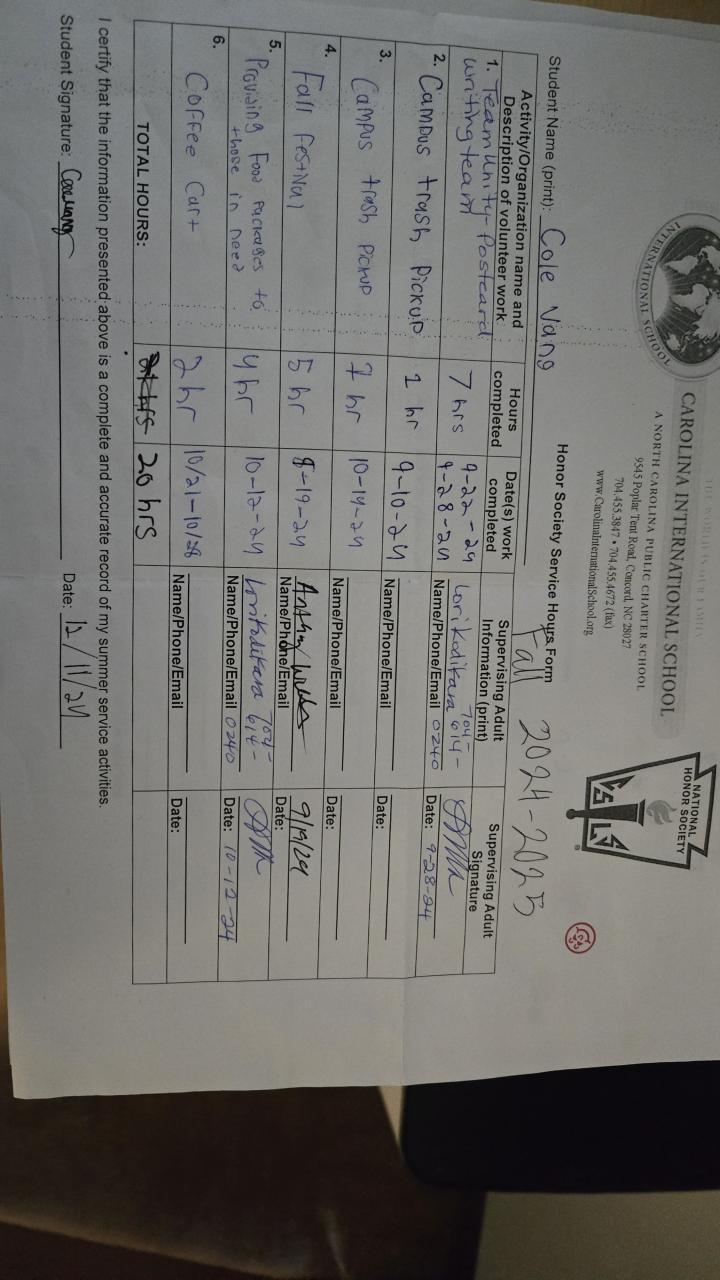 INTERNATIONAL SCHOOL
CAROLINA INTERNATIONAL SCHOOL
A NORTH CAROLINA PUBLIC CHARTER SCHOOL
9545 Poplar Tent Road, Concord, NC 28027
704.455.3847 • 704.455.4672 (fax)
www.CarolinaInternationalSchool.org
NATIONAL
HONOR SOCIETY
Honor Society Service Hours Form
Fall 2024-2025
Student Name (print): Cole Vang
Activity/Organization name and Description of volunteer work
Hours completed
Date(s) work completed
Supervising Adult Information (print)
Supervising Adult Signature
1. Team Unity-Postcard writing team
7 hrs
9-22-24
9-28-24
Lori Kodikara 704-614-0240
Name/Phone/Email
Date: 9-28-24
2. Campus trash Pickup
1 hr
9-10-24
Name/Phone/Email
Date:
3. Campus trash Pickup
1 hr
10-14-24
Name/Phone/Email
Date:
4. Fall Festival
5 hr
8-19-24
Name/Phone/Email
9/19/24
Date:
5. Providing Food Packages to those in need
4 hr
10-12-24
Lori Kodikara 704-614-0240
Name/Phone/Email
Date: 10-12-24
6. Coffee Cart
2 hr
10/21-10/28
Name/Phone/Email
Date:
TOTAL HOURS:
20 hrs
I certify that the information presented above is a complete and accurate record of my summer service activities.
Student Signature:
Date: 12/11/24